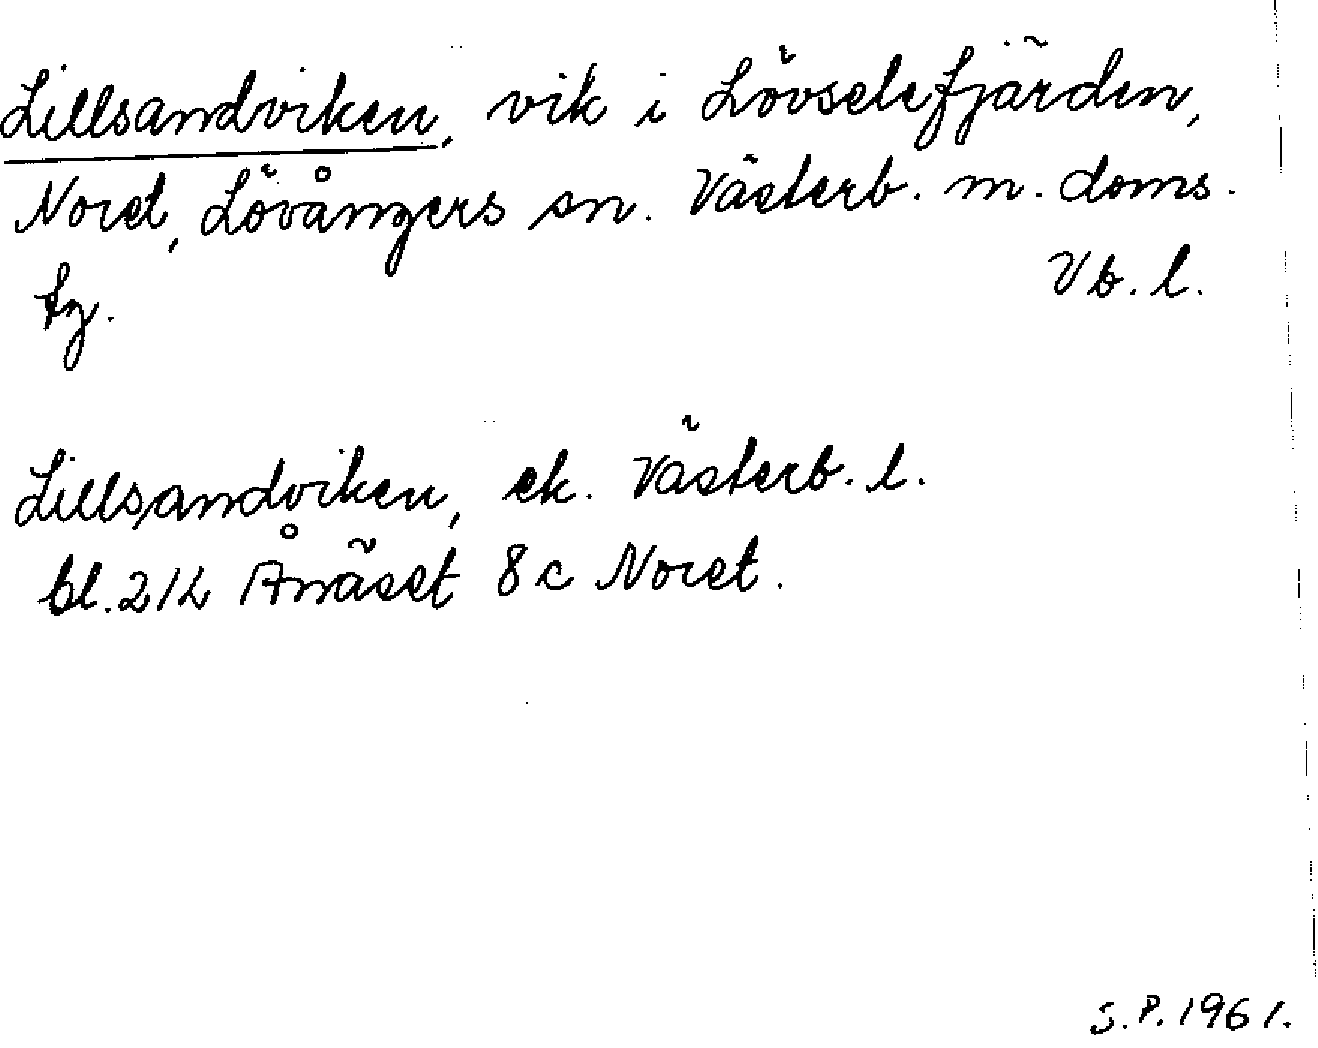 Lillsandviken, vik i Lövselefjärden,
Noret, Lövångers sn. Västerb. m. doms.
tg. Vb. l.
Lillsandviken, ek. Västerb. l.
bl. 21L Ånäset 8c Noret.
S.P. 1961.